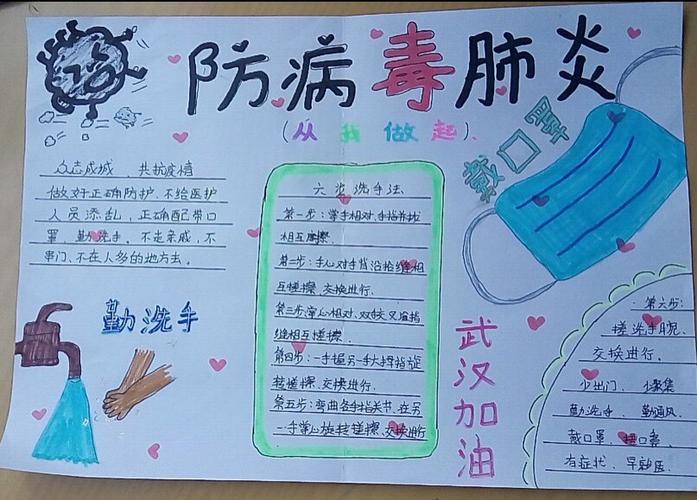 防病毒肺炎
(从我做起)
戴口罩
众志成城、共抗疫情
做好正确防护、不给医护
人员添乱，正确配带口
罩、勤洗手、不走亲戚，不
串门、不在人多的地方去。
勤洗手
六步洗手法
第一步：掌手相对，手指并拢
相互摩擦
第二步：手心对手背沿指缝相
互搓擦、交换进行、
第三步：掌心相对、双手交叉沿指
缝相互搓擦
第四步：一手握另一手大拇指旋
转搓擦、交换进行、
第五步：弯曲各手指关节、在另
一手掌心旋转搓擦、交换进行
武汉加油
第六步：
搓洗手腕、
交换进行。
少出门、少聚集
勤洗手、勤通风、
戴口罩、
有症状、早就医、